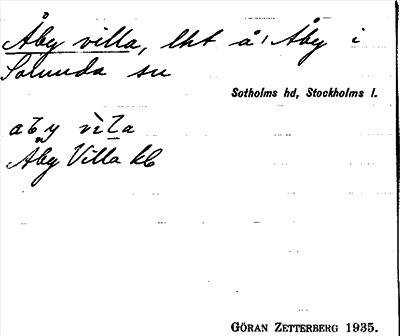 Åby villa, lht å 1/1 Åby i
Sorunda sn
Sotholms hd, Stockholms l.
åby vìla
Åby Villa kb
GÖRAN ZETTERBERG 1935.